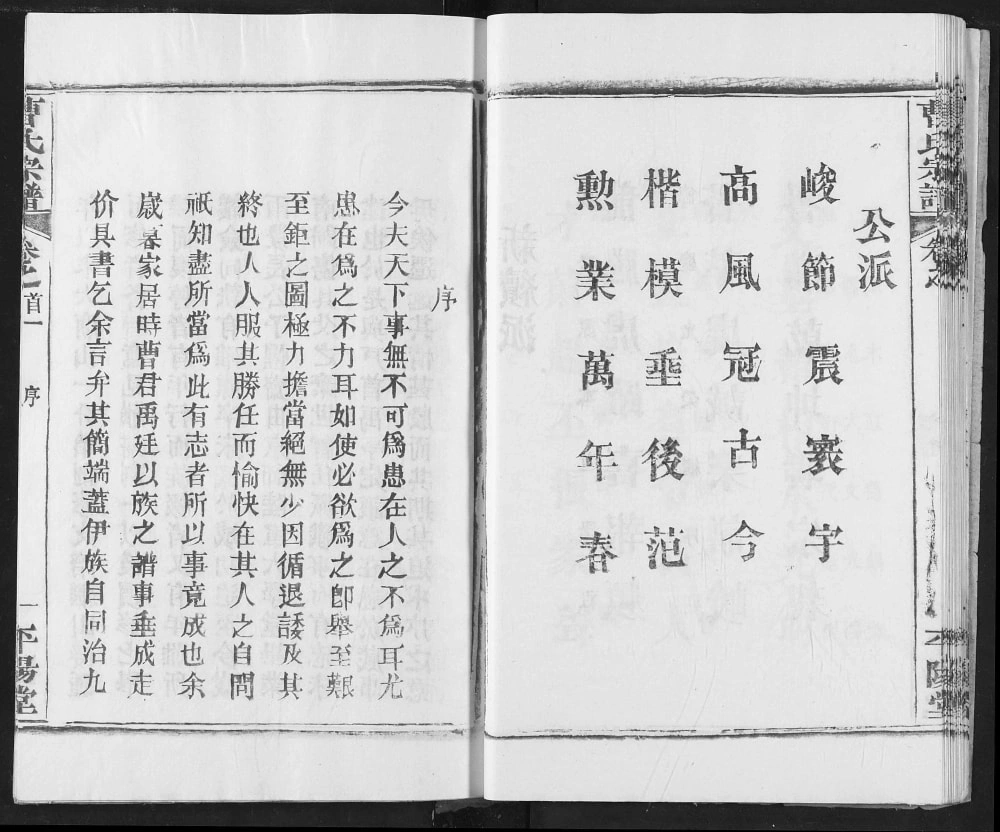 曹氏宗譜
卷之
平陽堂
公派
峻節震寰宇
高風冠古今
楷模垂後范
勲業萬年春
序
今夫天下事無不可爲患在人之不爲耳尤
患在爲之不力耳如使必欲爲之卽舉至艱
至鉅之圖極力擔當絕無少因循退諉及其
終也人人服其勝任而愉快在其人之自問
祇知盡所當爲此有志者所以事竟成也余
歲暮家居時曹君禹廷以族之譜事垂成走
价具書乞余言弁其簡端蓋伊族自同治九
曹氏宗譜
卷之
首一
序
一
平陽堂